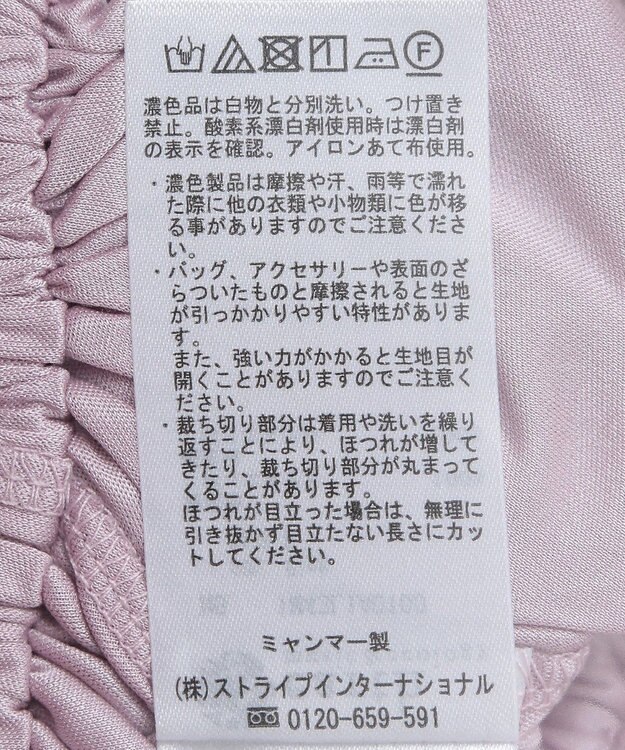 F
濃色品は白物と分別洗い。つけ置き
禁止。酸素系漂白剤使用時は漂白剤
の表示を確認。アイロンあて布使用。
・濃色製品は摩擦や汗、雨等で濡れ
た際に他の衣類や小物類に色が移
る事がありますのでご注意くださ
い。
・バッグ、アクセサリーや表面のざ
らついたものと摩擦されると生地
が引っかかりやすい特性がありま
す。
また、強い力がかかると生地目が
開くことがありますのでご注意く
ださい。
・裁ち切り部分は着用や洗いを繰り
返すことにより、ほつれが増して
きたり、裁ち切り部分が丸まって
くることがあります。
ほつれが目立った場合は、無理に
引き抜かず目立たない長さにカッ
トしてください。
ミャンマー製
(株)ストライプインターナショナル
0120-659-591